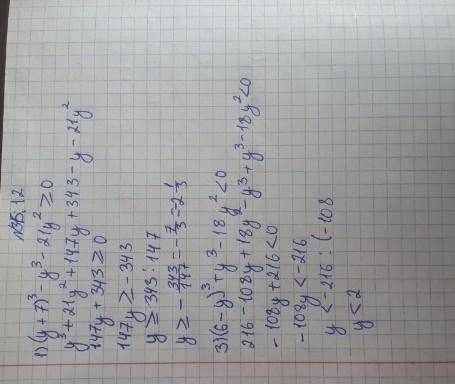 №35.12
1) (y+7)³ - y³ - 21y² ≥ 0
y³ + 21y² + 147y + 343 - y - 21y²
147y + 343 ≥ 0
147y ≥ -343
y ≥ 343 : 147
y ≥ - 343/147 = - 7/3 = 2 1/3
3) (6-y)³ + y³ - 18y² < 0
216 - 108y + 18y² - y³ + y³ - 18y² < 0
- 108y + 216 < 0
- 108y < -216
y < -216 : (-108
y < 2